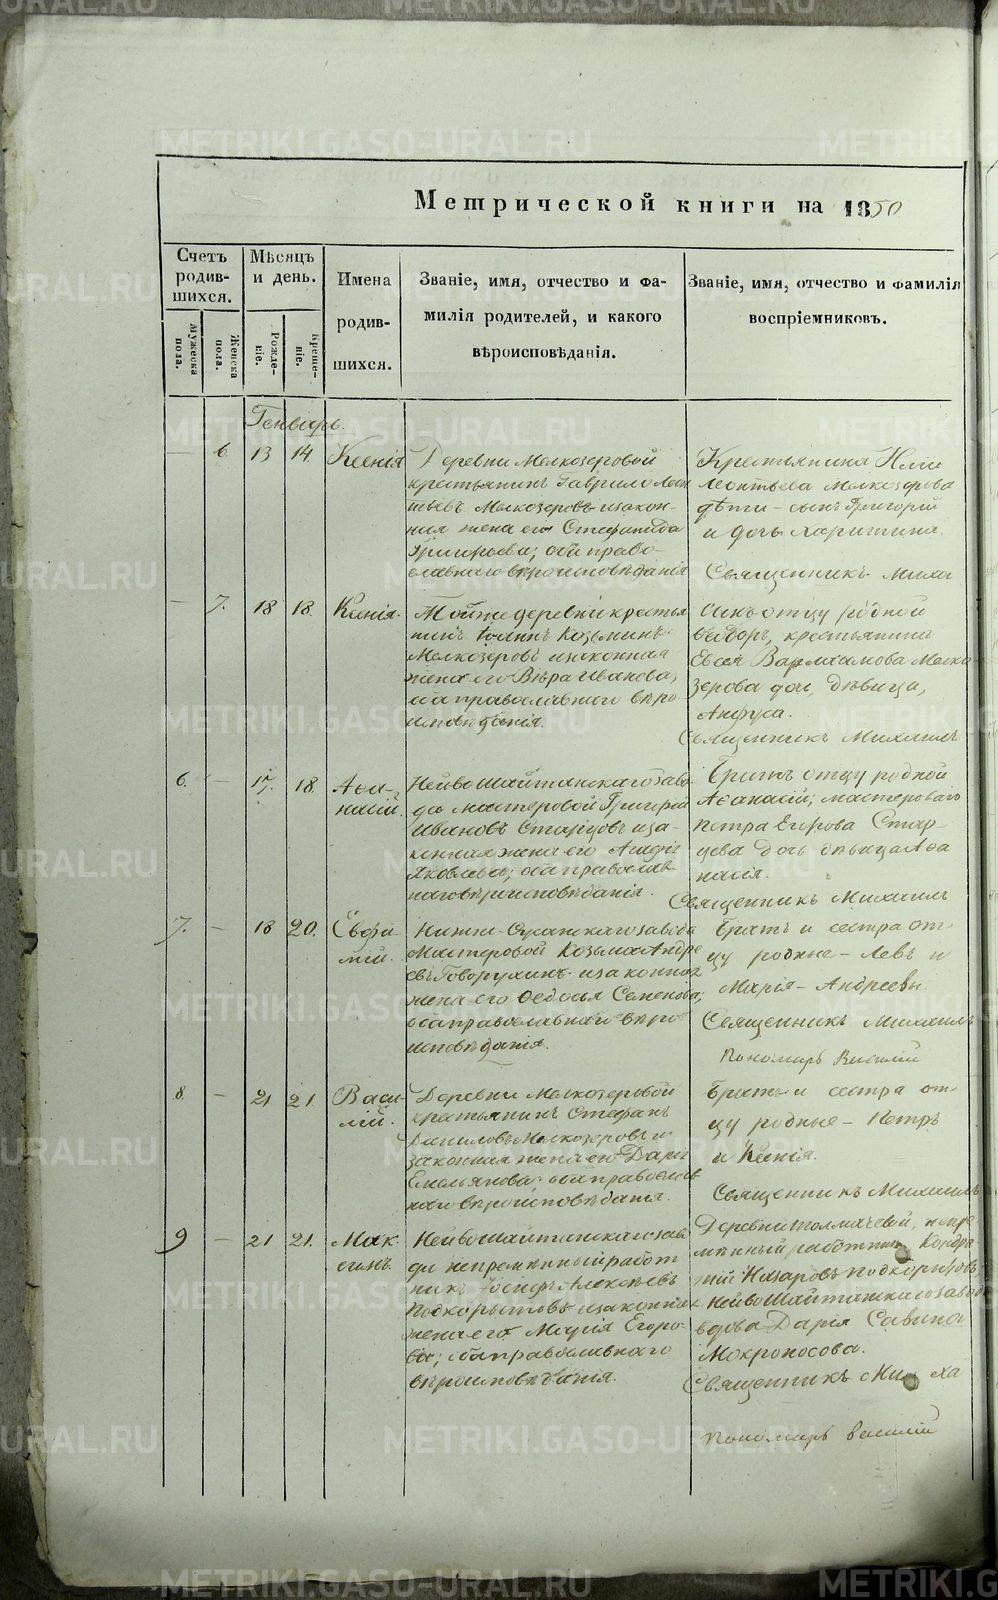 Метрической книги на 1850
Счетъ родив-шихся.
Мѣсяцъ и день.
Имена родив-шихся.
Званіе, имя, отчество и фа-
милія родителей, и какого
вѣроисповѣданія.
Званіе, имя, отчество и фамилія
воспріемниковъ.
Мужеска пола.
Женска пола.
Рожде-ніе.
Креще-ніе.
Генварь.
— 6. 13 14. Ксенія
Деревни Мелкозеровой
крестьянинъ Гаврило Леон
тьевъ Мелкозеровъ и закон-
ная жена его Степанида
Григорьева; оба право-
славнаго вѣроисповѣданія
Крестьянина Иліи
Леонтьева Мелкозерова
дѣти – сынъ Григорій
и дочь Харитина.
Священникъ Миха
— 7. 18 18. Ксенія.
Той же деревни крестья
нинъ Іоаннъ Козьминъ
Мелкозеровъ и законная
жена его Вѣра Иванова,
оба православнаго вѣро
исповѣданія.
Сынъ отцу родной
Ѳедоръ, крестьянина
Евсея Варлаамова Мелко
зерова дочь, дѣвица,
Анфуса.
Священникъ Михаилъ
6. — 17. 18. Аѳа-
насій.
Нейво Шайтанскаго заво
да мастеровой Григорій
Ивановъ Старцовъ и за-
конная жена его
Яковлева; оба православ
наго вѣроисповѣданія.
Братъ отцу родной
Аѳанасій; мастероваго
Петра Егорова Стар-
цева дочь дѣвица Аѳа
насія.
Священникъ Михаилъ
7. — 18 20. Евфи-
мій.
Нижне-Сусанскаго завода
Мастеровой Козьма Андре
евъ Говорухинъ и законная
жена его Ѳедосья Семенова;
оба православнаго вѣро
исповѣданія.
Братъ и сестра от-
цу родные – Левъ и
Марія – Андреевы
Священникъ Михаилъ
Пономарь Василій
8. — 21 21. Васи-
лій.
Деревни Мелкозеровой
крестьянинъ Стефанъ
Даниловъ Мелкозеровъ и
законная жена его Дарія
Емельянова; оба православ
наго вѣроисповѣданія.
Братъ и сестра от-
цу родные – Петръ
и Ксенія.
Священникъ Михаилъ
9 — 21 21. Мак-
симъ.
Нейво Шайтанскаго заво
да непремѣнный работ
никъ Іосифъ Алексѣевъ
Подкорытовъ и законная
жена его Марія Егоро-
ва; оба православнаго
вѣроисповѣданія.
Деревни Толмачевой, непре
мѣнный работникъ Кондра
тій Назаровъ Подкорытовъ
и Нейво Шайтанскаго завода
вдова Дарія Савина
Мокроносова.
Священникъ Миха
Пономарь Василій
METRIKI.GASO-URAL.RU